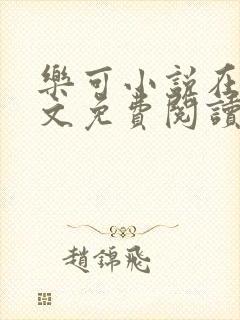 樂可小說在
文免費閱讀
趙錦飛